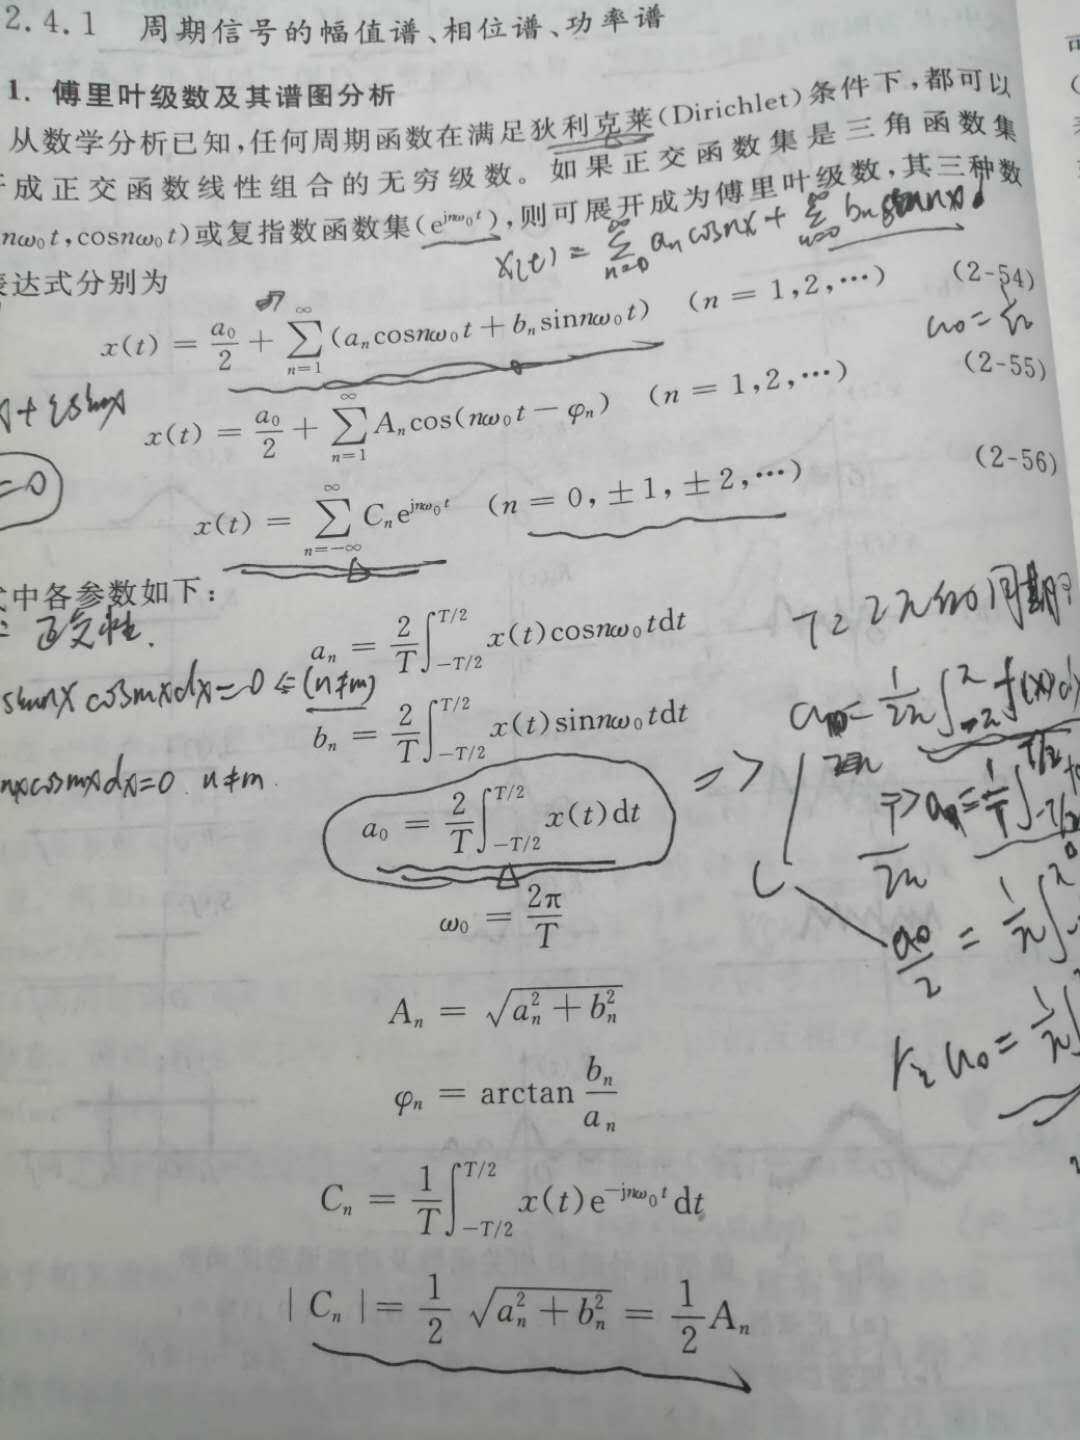 2.4.1 周期信号的幅值谱、相位谱、功率谱
1. 傅里叶级数及其谱图分析
从数学分析已知,任何周期函数在满足狄利克莱(Dirichlet)条件下,都可以
成正交函数线性组合的无穷级数。如果正交函数集是三角函数集
nω₀t,cosnω₀t)或复指数函数集(e^{jnω₀t}),则可展开成为傅里叶级数,其三种数
x(t) = ∑_{n=0}^{∞} aₙ cosnx + ∑_{n=0}^{∞} bₙ sinnx
表达式分别为
x(t) = a₀/2 + ∑_{n=1}^{∞} (aₙcosnω₀t + bₙsinnω₀t) (n = 1,2,⋯) (2-54)
x(t) = a₀/2 + ∑_{n=1}^{∞} Aₙcos(nω₀t − φₙ) (n = 1,2,⋯) (2-55)
=0
x(t) = ∑_{n=−∞}^{∞} Cₙe^{jnω₀t} (n = 0, ±1, ±2,⋯) (2-56)
式中各参数如下:
正交性.
T=2π的周期
aₙ = 2/T ∫_{−T/2}^{T/2} x(t)cosnω₀tdt
sinnx cosmxdx=0 ⇐ (n≠m)
bₙ = 2/T ∫_{−T/2}^{T/2} x(t)sinnω₀tdt
nxcosmxdx=0. n≠m.
a₀ = 2/T ∫_{−T/2}^{T/2} x(t)dt
=>
ω₀ = 2π/T
a₀/2 = 1/π ∫
Aₙ = √(aₙ² + bₙ²)
φₙ = arctan bₙ/aₙ
Cₙ = 1/T ∫_{−T/2}^{T/2} x(t)e^{−jnω₀t}dt
|Cₙ| = 1/2 √(aₙ² + bₙ²) = 1/2 Aₙ